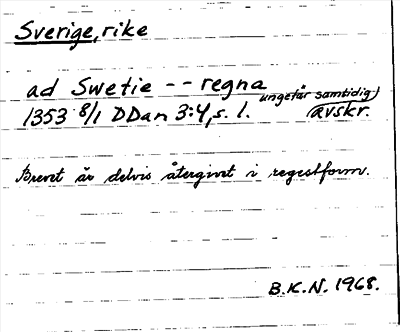 Sverige, rike
ad Swetie -- regna
ungefär samtidig)
1353 8/1 DDan 3:4, s. 1. avskr.
Brevet är delvis återgivet i regestform.
B.K.N. 1968.